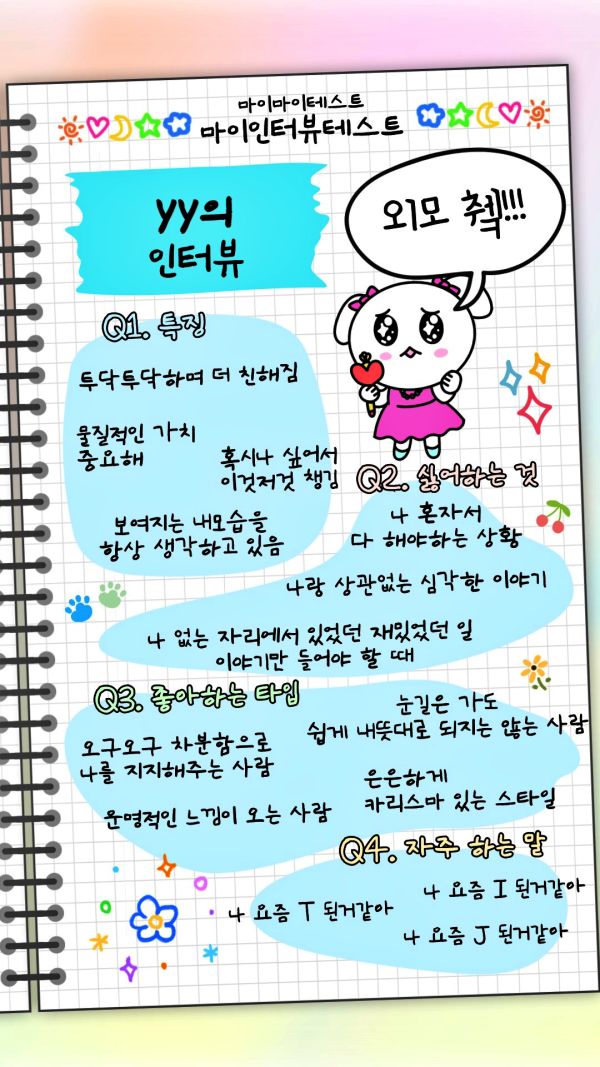 마이마이테스트
마이인터뷰테스트
yy의
인터뷰
외모 췍!!!
Q1. 특징
투닥투닥하며 더 친해짐
물질적인 가치
중요해
혹시나 싶어서
이것저것 챙김
보여지는 내모습을
항상 생각하고 있음
Q2. 싫어하는 것
나 혼자서
다 해야하는 상황
나랑 상관없는 심각한 이야기
나 없는 자리에서 있었던 재밌었던 일
이야기만 들어야 할 때
Q3. 좋아하는 타입
눈길은 가도
쉽게 내뜻대로 되지는 않는 사람
오구오구 차분함으로
나를 지지해주는 사람
은은하게
카리스마 있는 스타일
운명적인 느낌이 오는 사람
Q4. 자주 하는 말
나 요즘 I 된거같아
나 요즘 T 된거같아
나 요즘 J 된거같아